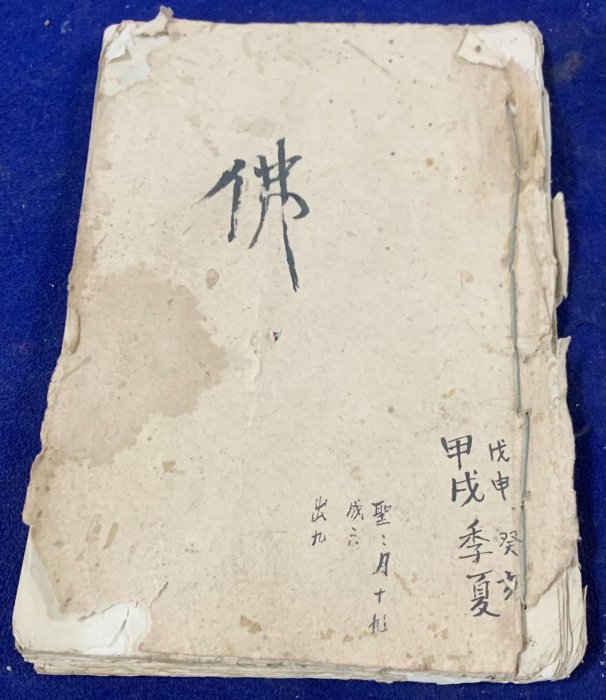 戊申 癸亥
甲戌季夏
聖、月十九
成六
出九
佛